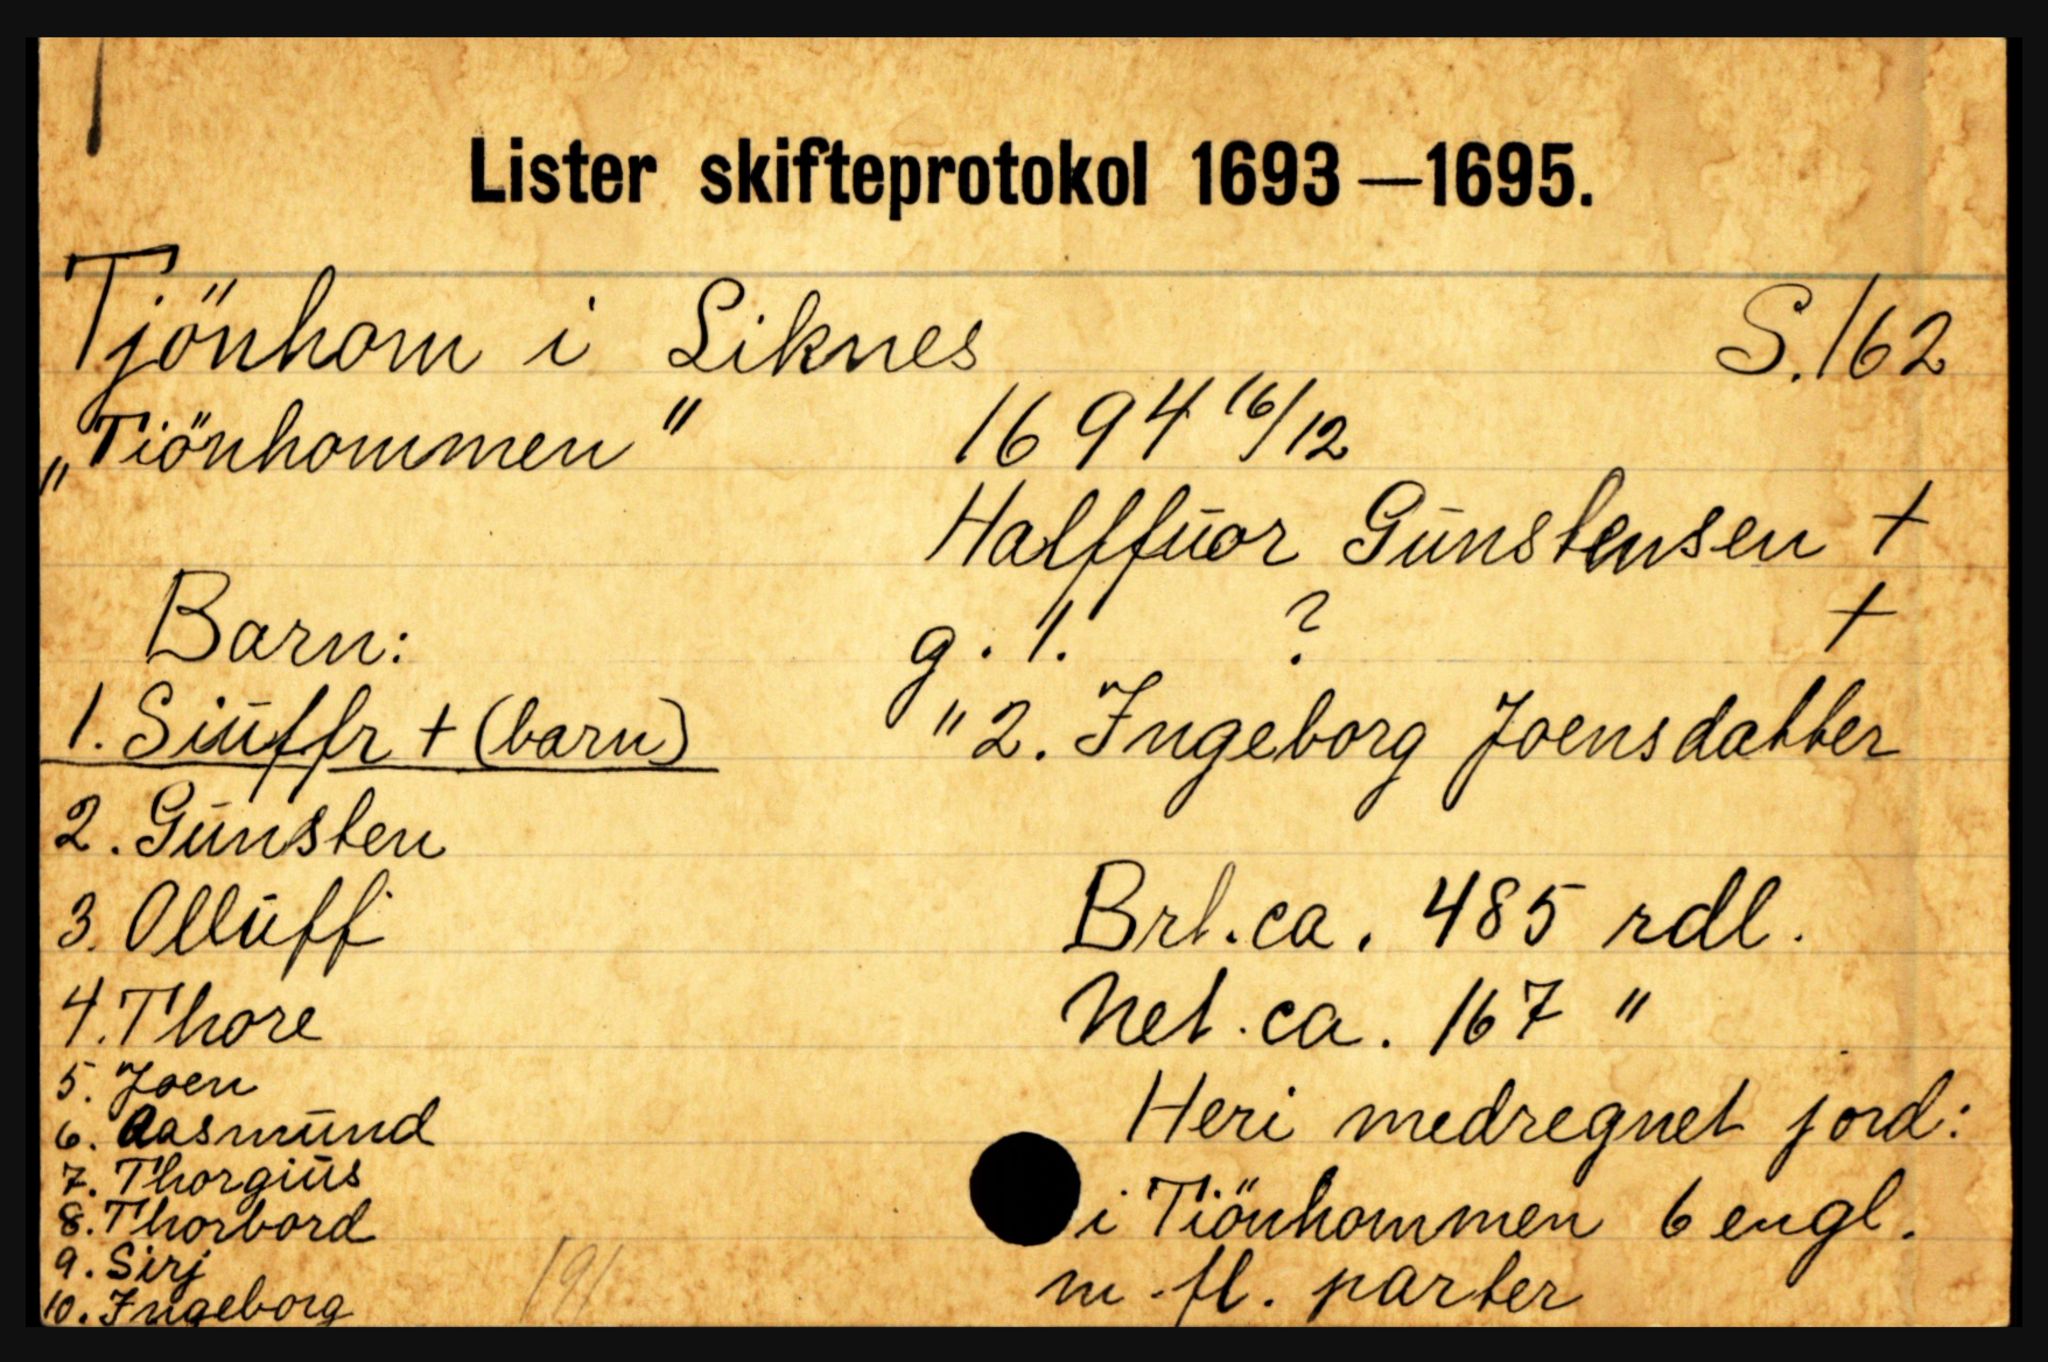 Lister skifteprotokol 1693—1695.
Tjönhom i Liknes S. 162
„Tiönhommen" 1694 16/12
Halffūor Gūnstensen +
Barn: g. 1. ? +
1. Siūffr + (barn) " 2. Ingeborg Joensdatter
2. Gūnsten
3. Ollūff Brt. ca. 485 rdl.
4. Thore Net. ca. 167 "
5. Joen Heri medregnet jord:
6. Aasmūnd
7. Thorgiūs
8. Thorbord i Tiönhommen 6 engl.
9. Sirj
10. Ingeborg 191 m. fl. parter